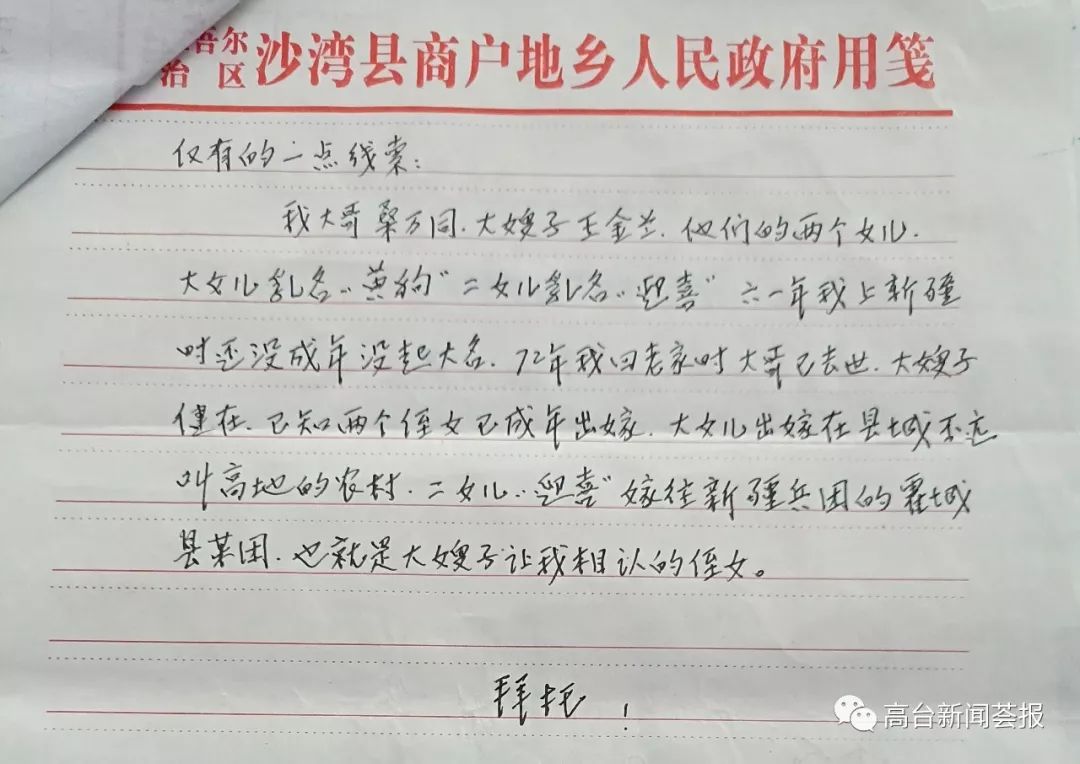 吾尔
治 区 沙湾县商户地乡人民政府用笺
仅有的一点线索：
我大哥桑万同.大嫂子王金兰.他们的两个女儿.
大女儿乳名“黄狗”二女儿乳名“迎喜”六一年我上新疆
时还没成年没起大名.72年我回老家时大哥已去世.大嫂子
健在.已知两个侄女已成年出嫁.大女儿出嫁在县城不远
叫高地的农村.二女儿“迎喜”嫁往新疆兵团的霍城
县某团.也就是大嫂子让我相认的侄女。
拜托！
高台新闻荟报